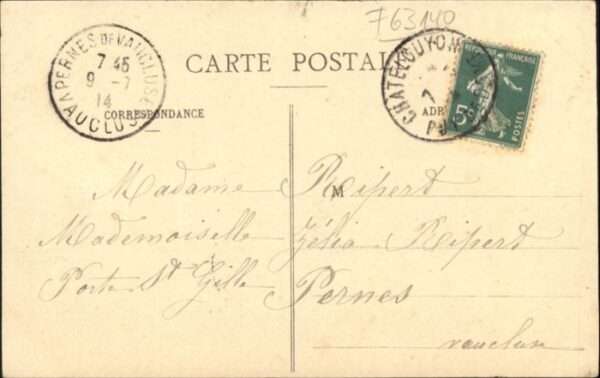 F63140
PERNES DE VAUCLUSE
7 45
9 -7
14
VAUCLUSE
CARTE POSTALE
CHATELGUYON
PUY
REPUBLIQUE FRANÇAISE
5c
POSTES
CORRESPONDANCE
ADR
M
Madame Reipert
Mademoiselle Zélia Reipert
Porte St Gille Pernes
vaucluse